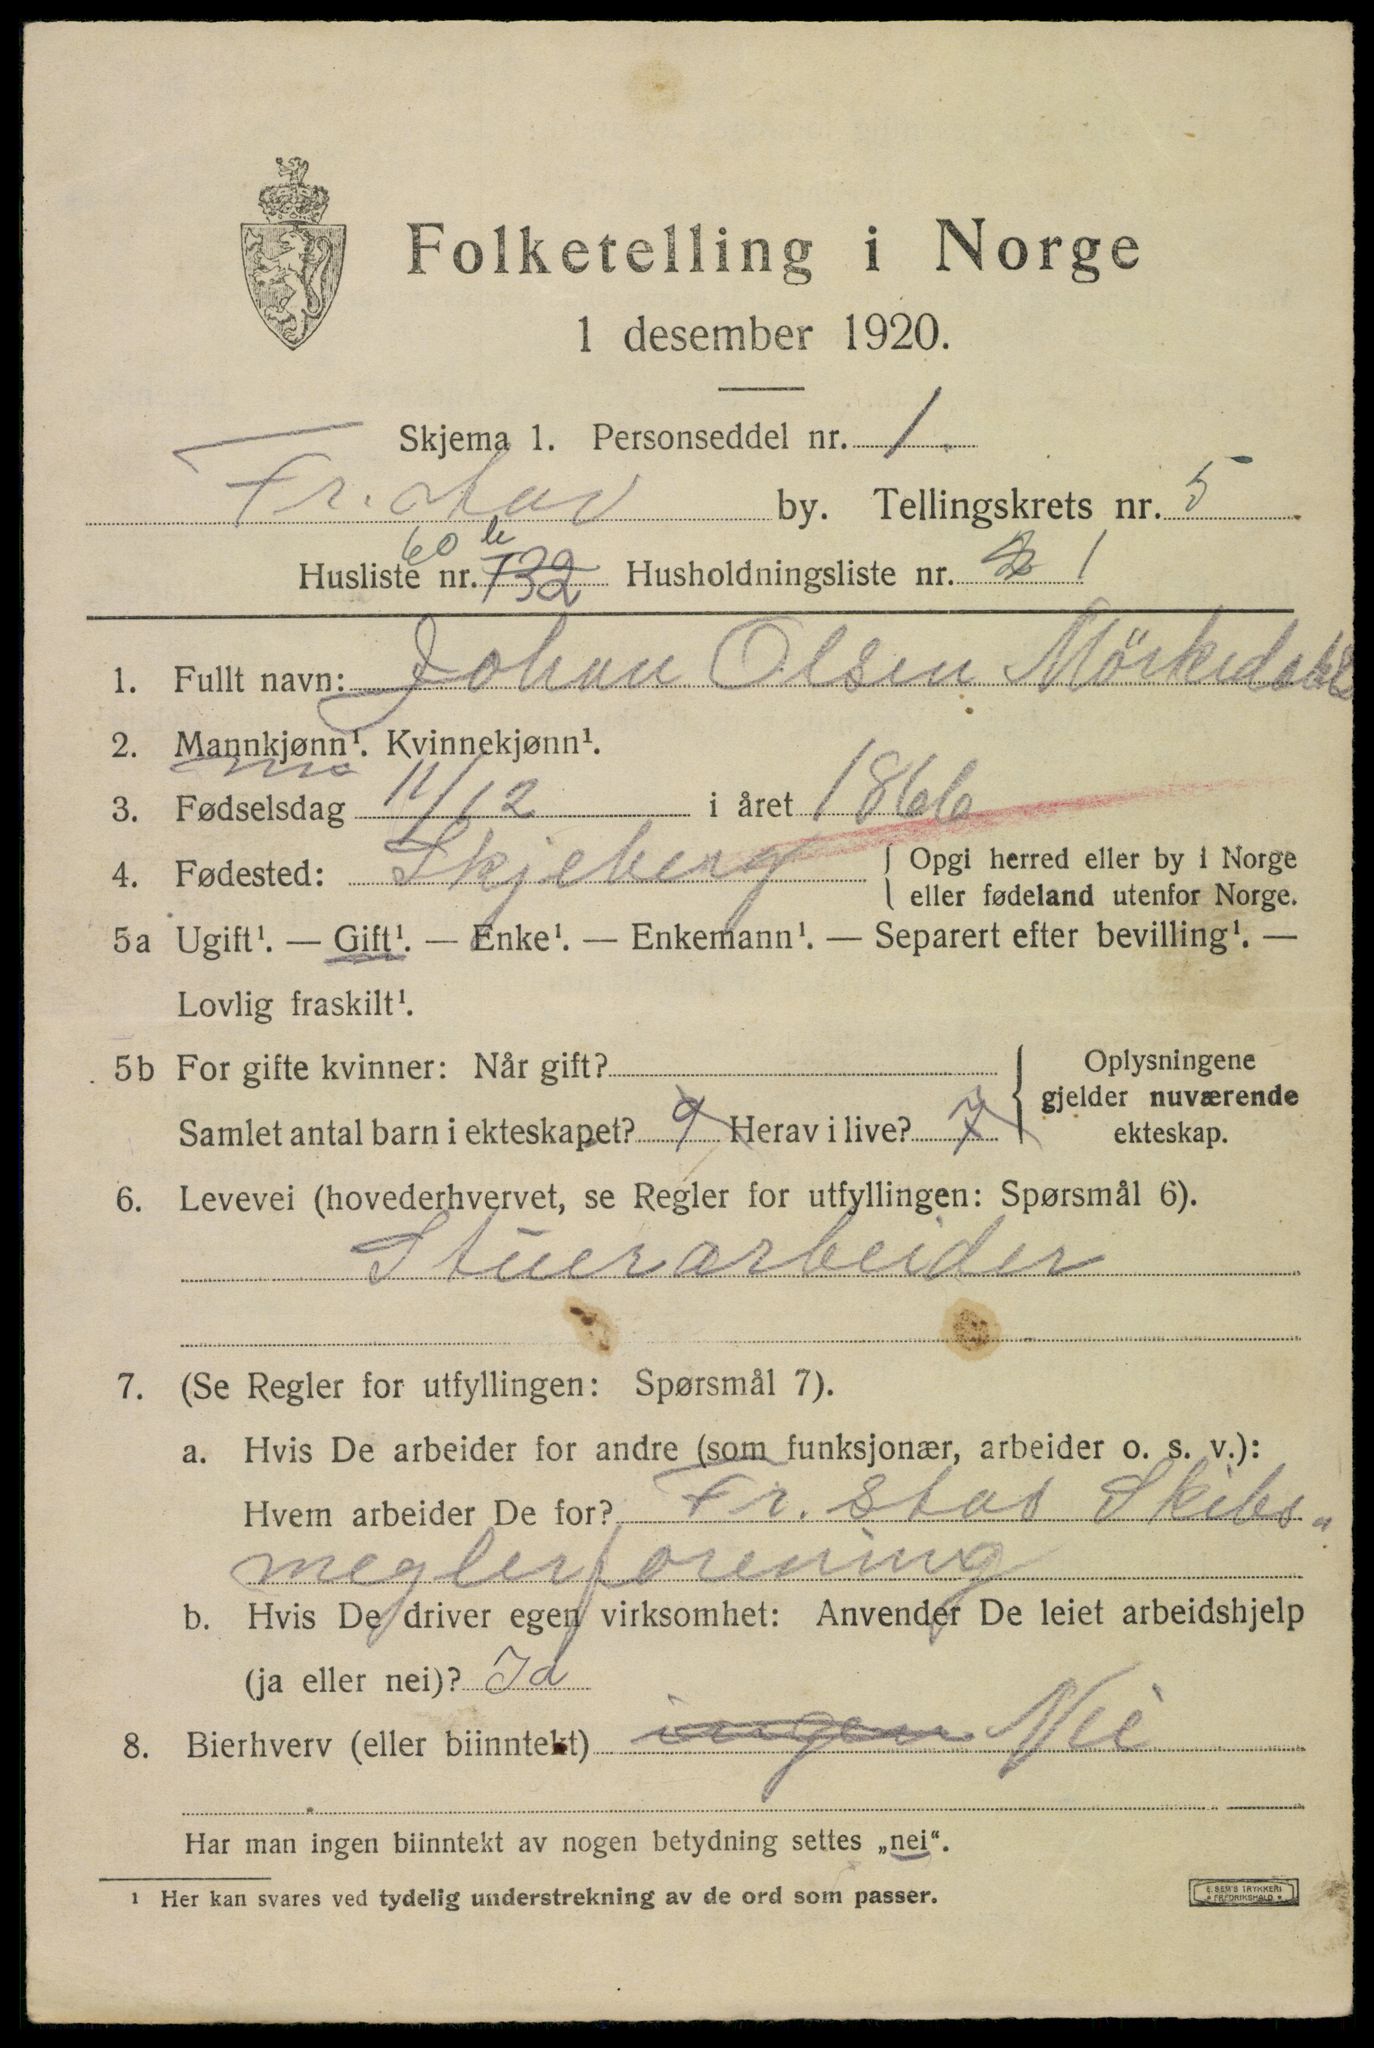 Folketelling i Norge
1 desember 1920.
Skjema 1. Personseddel nr. 1.
Fr. stad by. Tellingskrets nr. 5
60 b
Husliste nr. 732 Husholdningsliste nr. 1
1. Fullt navn: Johan Olsen
2. Mannkjønn¹. Kvinnekjønn¹.
3. Fødselsdag 11/12 i året 1866
4. Fødested: Skjeberg { Opgi herred eller by i Norge
eller fødeland utenfor Norge.
5a Ugift¹. — Gift¹. — Enke¹. — Enkemann¹. — Separert efter bevilling¹. —
Lovlig fraskilt¹.
5b For gifte kvinner: Når gift? { Oplysningene
gjelder nuværende
ekteskap.
Samlet antal barn i ekteskapet? 9 Herav i live? 7
6. Levevei (hovederhvervet, se Regler for utfyllingen: Spørsmål 6).
Stuerarbeider
7. (Se Regler for utfyllingen: Spørsmål 7).
a. Hvis De arbeider for andre (som funksjonær, arbeider o. s. v.):
Hvem arbeider De for? Fr. stad Skibs„
meglerforening
b. Hvis De driver egen virksomhet: Anvender De leiet arbeidshjelp
(ja eller nei)? Ja
8. Bierhverv (eller biinntekt) ingen Nei
Har man ingen biinntekt av nogen betydning settes „nei“.
¹ Her kan svares ved tydelig understrekning av de ord som passer.
E. SEM'S TRYKKERI
FREDRIKSHALD